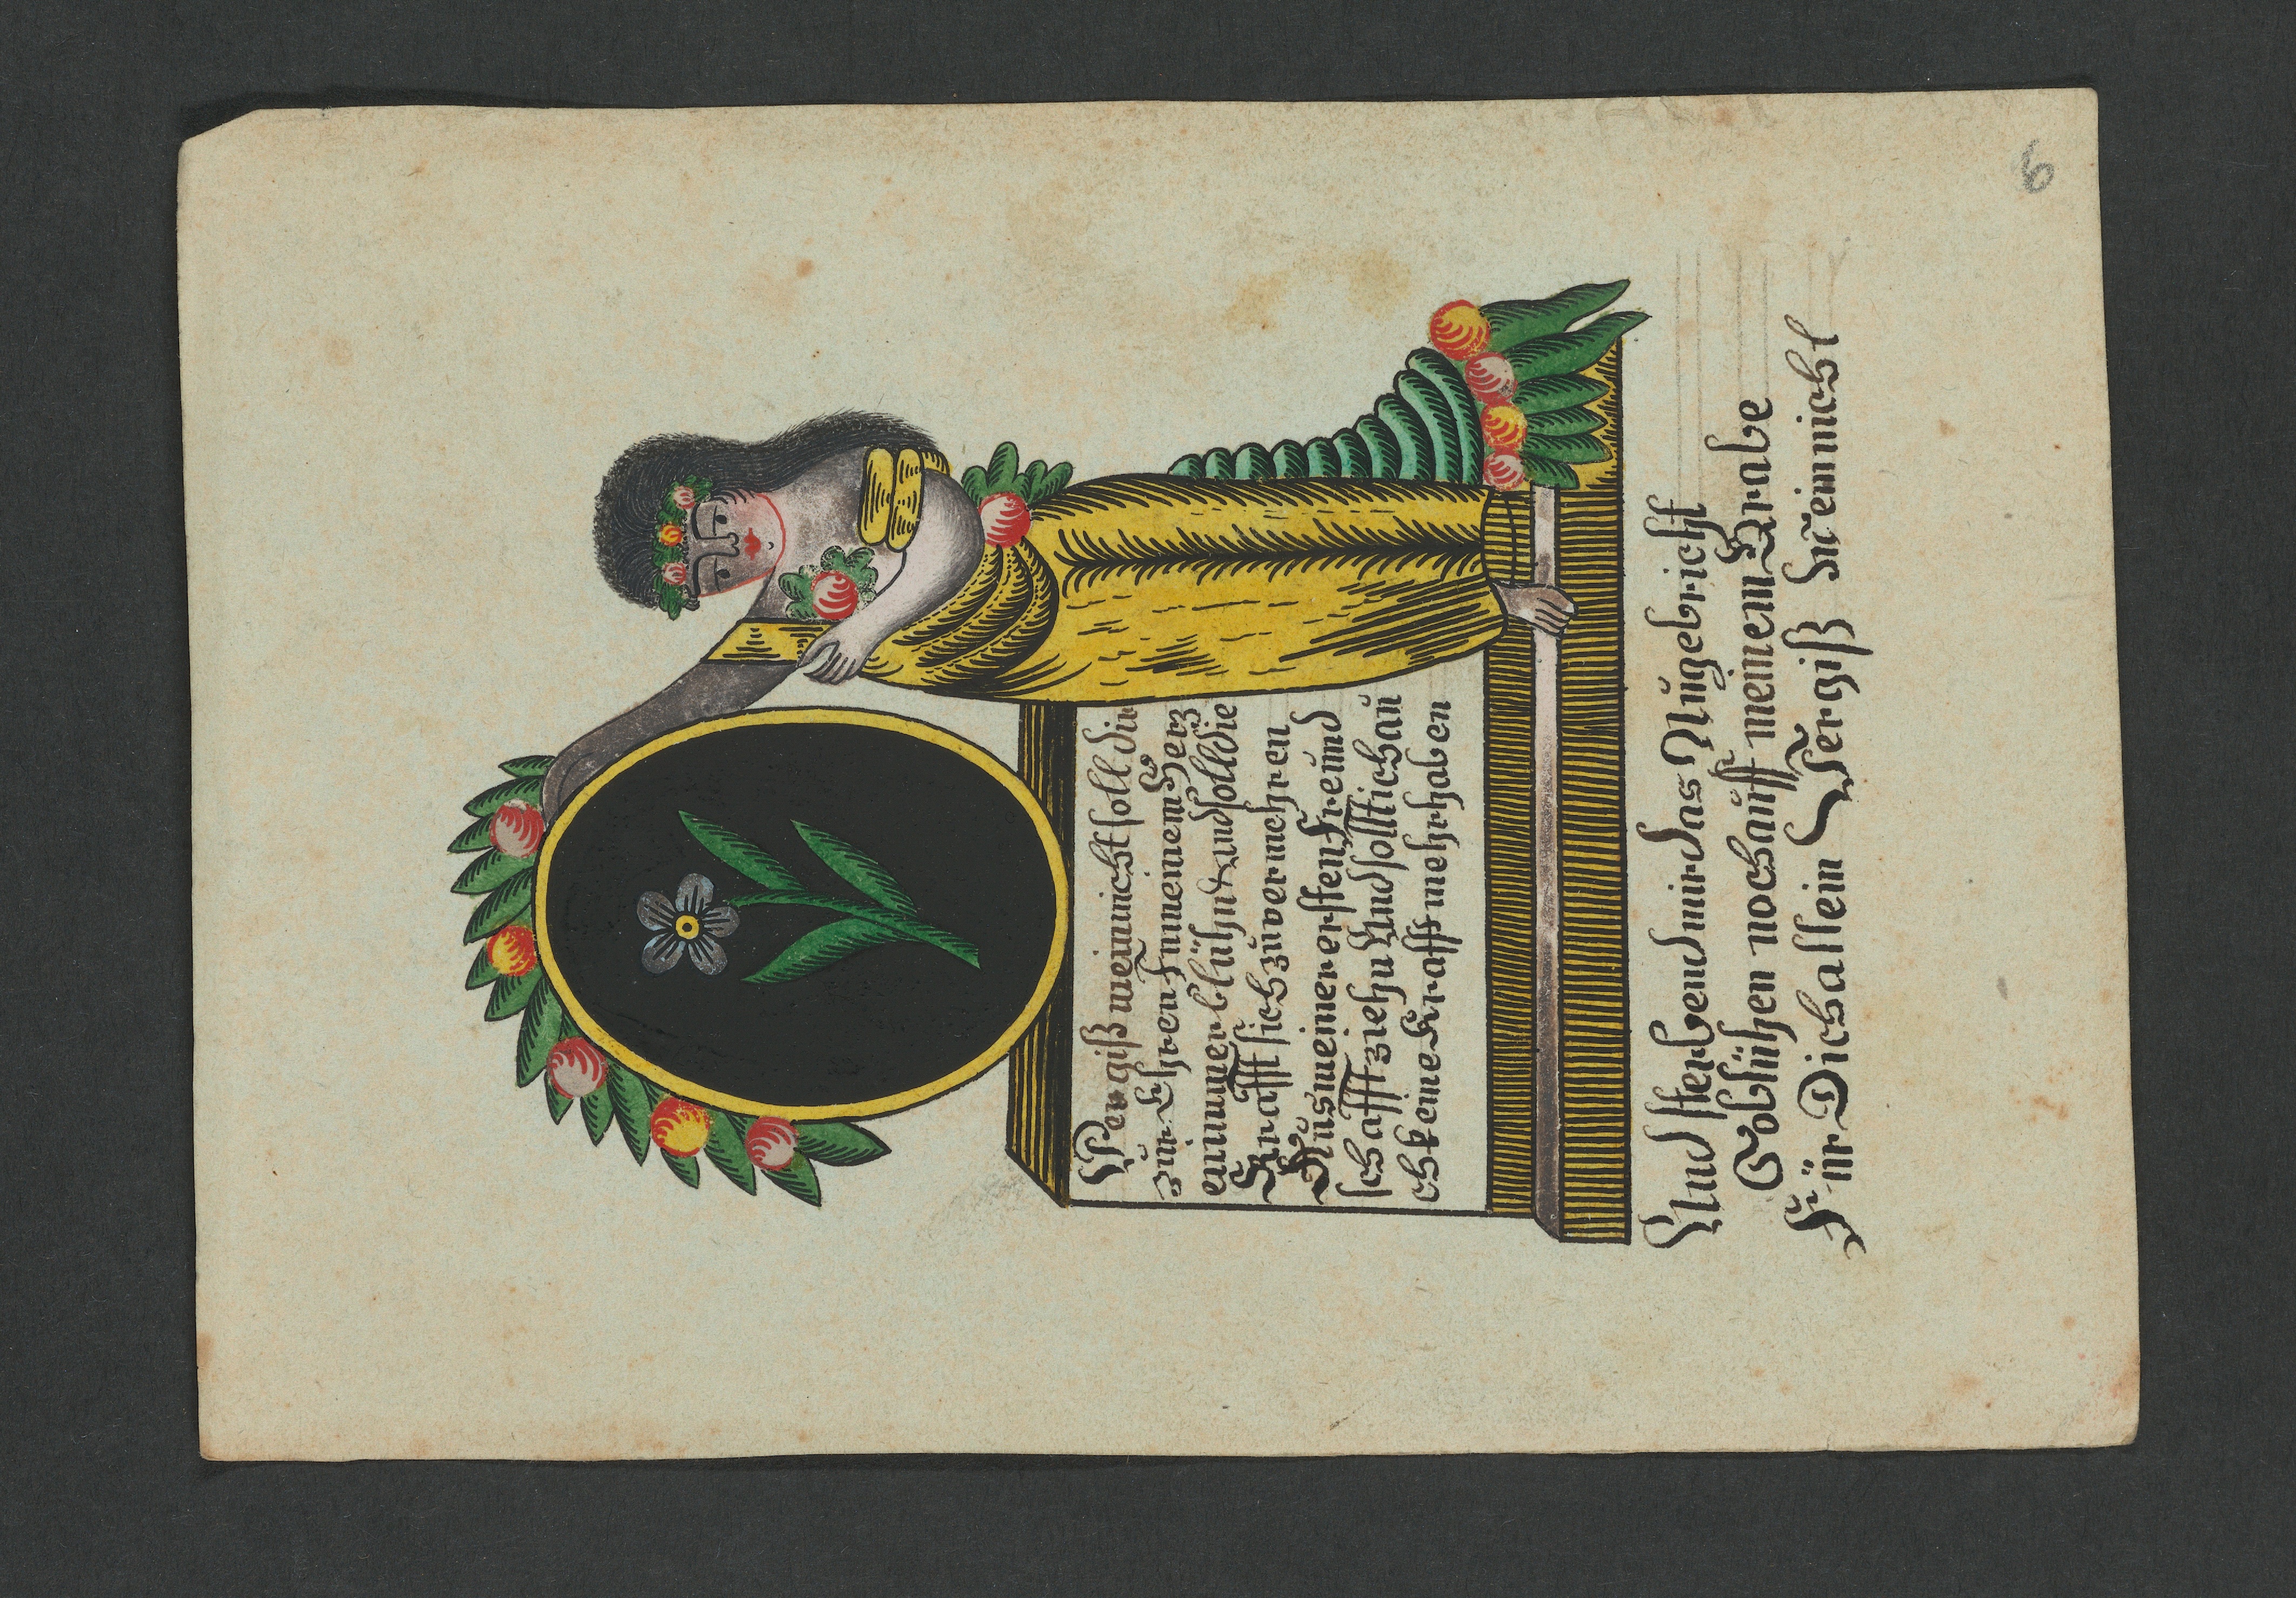 Vergiß mein nicht soll dir
zŭr Ehren Inn meinem Herz
en immer blühn Und soll die
Krafft sich zŭ vermehren
Aŭs meiner ersten Freŭnd
schafft ziehn Und sollt ich aŭ
ch keine Krafft mehr haben
Und sterbend mir das Aŭge bricht
So blühen noch aŭff meinem Grabe
Für Dich allein Vergiß Mein nicht
6